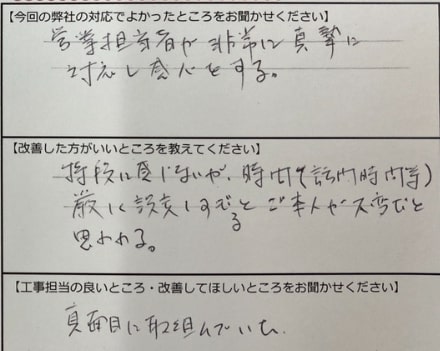 【今回の弊社の対応でよかったところをお聞かせください】
営業担当者が非常に真摯に
対応し感心をする。
【改善した方がいいところを教えてください】
特段に感じないが、時間(訪門時間等)
厳しく設定しすぎると ご本人が大変だと
思われる。
【工事担当の良いところ・改善してほしいところをお聞かせください】
真面目に取組んでいた。